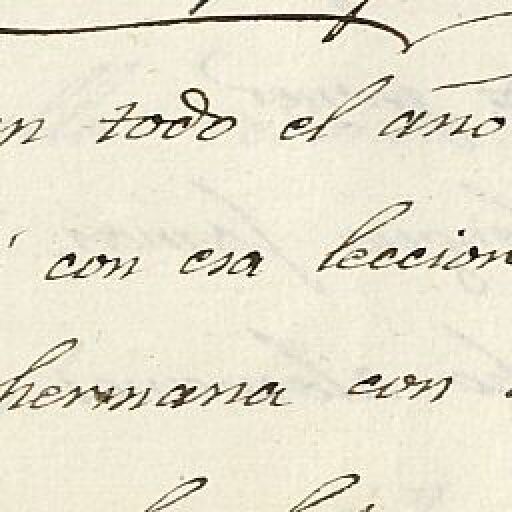 en todo el año
con esa leccion
hermana con